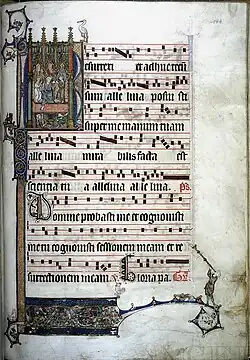 esurrexi et adhuc tecu
sum alle luia posui sti
super me manum tuam
alle luia mira bilis facta est
scientia tu a alleluia al le luia. ps
Domine probasti me et cognouisti
me tu cognouisti sessionem meam et re
surrectionem meam